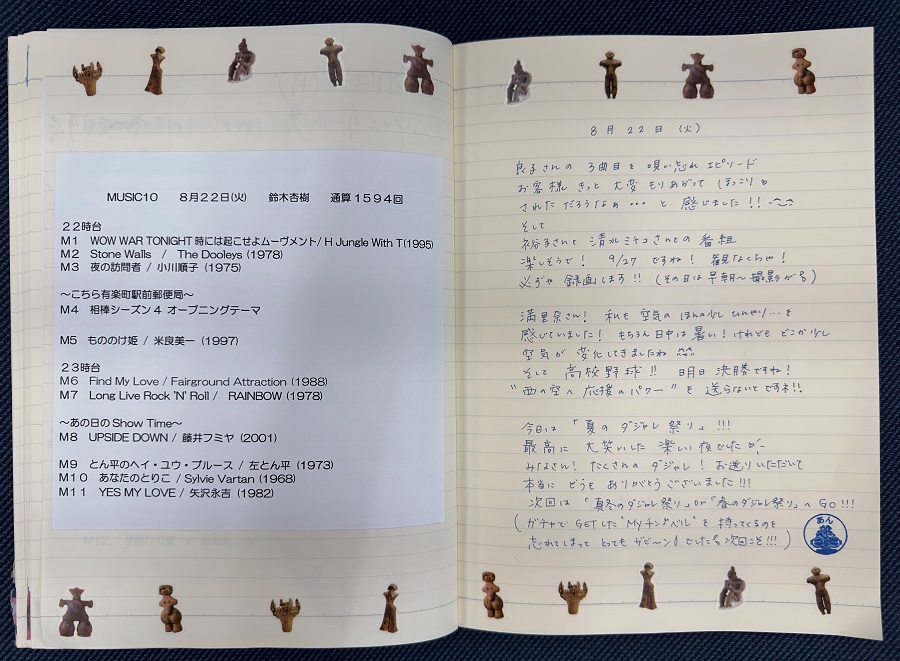 MUSIC10　8月22日(火)　鈴木杏樹　通算1594回
22時台
M1　WOW WAR TONIGHT 時には起こせよムーヴメント/ H Jungle With T(1995)
M2　Stone Walls　/　The Dooleys (1978)
M3　夜の訪問者 / 小川順子 (1975)
～こちら有楽町駅前郵便局～
M4　相棒シーズン4 オープニングテーマ
M5　もののけ姫 / 米良美一 (1997)
23時台
M6　Find My Love / Fairground Attraction (1988)
M7　Long Live Rock 'N' Roll /　RAINBOW (1978)
～あの日のShow Time～
M8　UPSIDE DOWN / 藤井フミヤ (2001)
M9　とん平のヘイ・ユウ・ブルース / 左とん平 (1973)
M10　あなたのとりこ / Sylvie Vartan (1968)
M11　YES MY LOVE / 矢沢永吉 (1982)
8月 22日 (火)
良子さんの 3曲目を 唄い忘れ エピソード
お客様 きっと 大変 もりあがって ほっこり
されただろうなぁ… と 感じました!!
そして
裕子さんと 清水ミチコさんとの 番組
楽しそうで! 9/27 ですね! 観なくちゃ!
必ずや 録画します!! (その日は早朝〜撮影が)
満里奈さん! 私も 空気の ほんの少し ひんやり…を
感じていました! もちろん 日中は 暑い! けれども どこか少し
空気が 変化してきましたね
そして 高校野球!! 明日 決勝ですね!
"西の空へ 応援のパワー" を 送らないとですネ!!
今日は 「夏の ダジャレ祭り」!!!
最高に 大笑いした 楽しい夜でした
みなさん! たくさんの ダジャレ! お送りいただいて
本当に どうも ありがとうございました!!!
次回は 「真冬のダジャレ祭り」or「春のダジャレ祭り」へ GO!!!
(ガチャで GETした "Myチンベル" を 持ってくるのを
忘れてしまって とっても ザビ〜ン♪ でした 次回こそ!!!)
あん